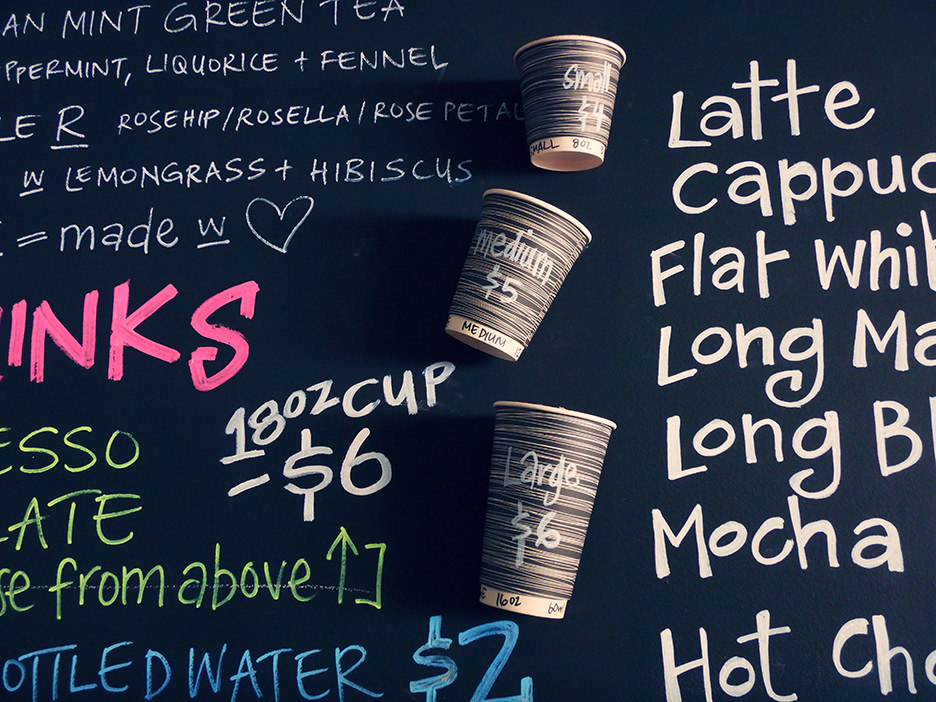 AN MINT GREEN TEA
PPERMINT, LIQUORICE + FENNEL
LE R ROSEHIP/ROSELLA/ROSE PETAL
w LEMONGRASS + HIBISCUS
= made w ♡
INKS
18oz CUP
- $6
ESSO
LATE
se from above ↑]
OTTLED WATER $2
small
$4
SMALL 8OZ
medium
$5
MEDIUM
Large
$6
16OZ
Latte
Cappuc
Flat Whit
Long Ma
Long Bl
Mocha
Hot Cho